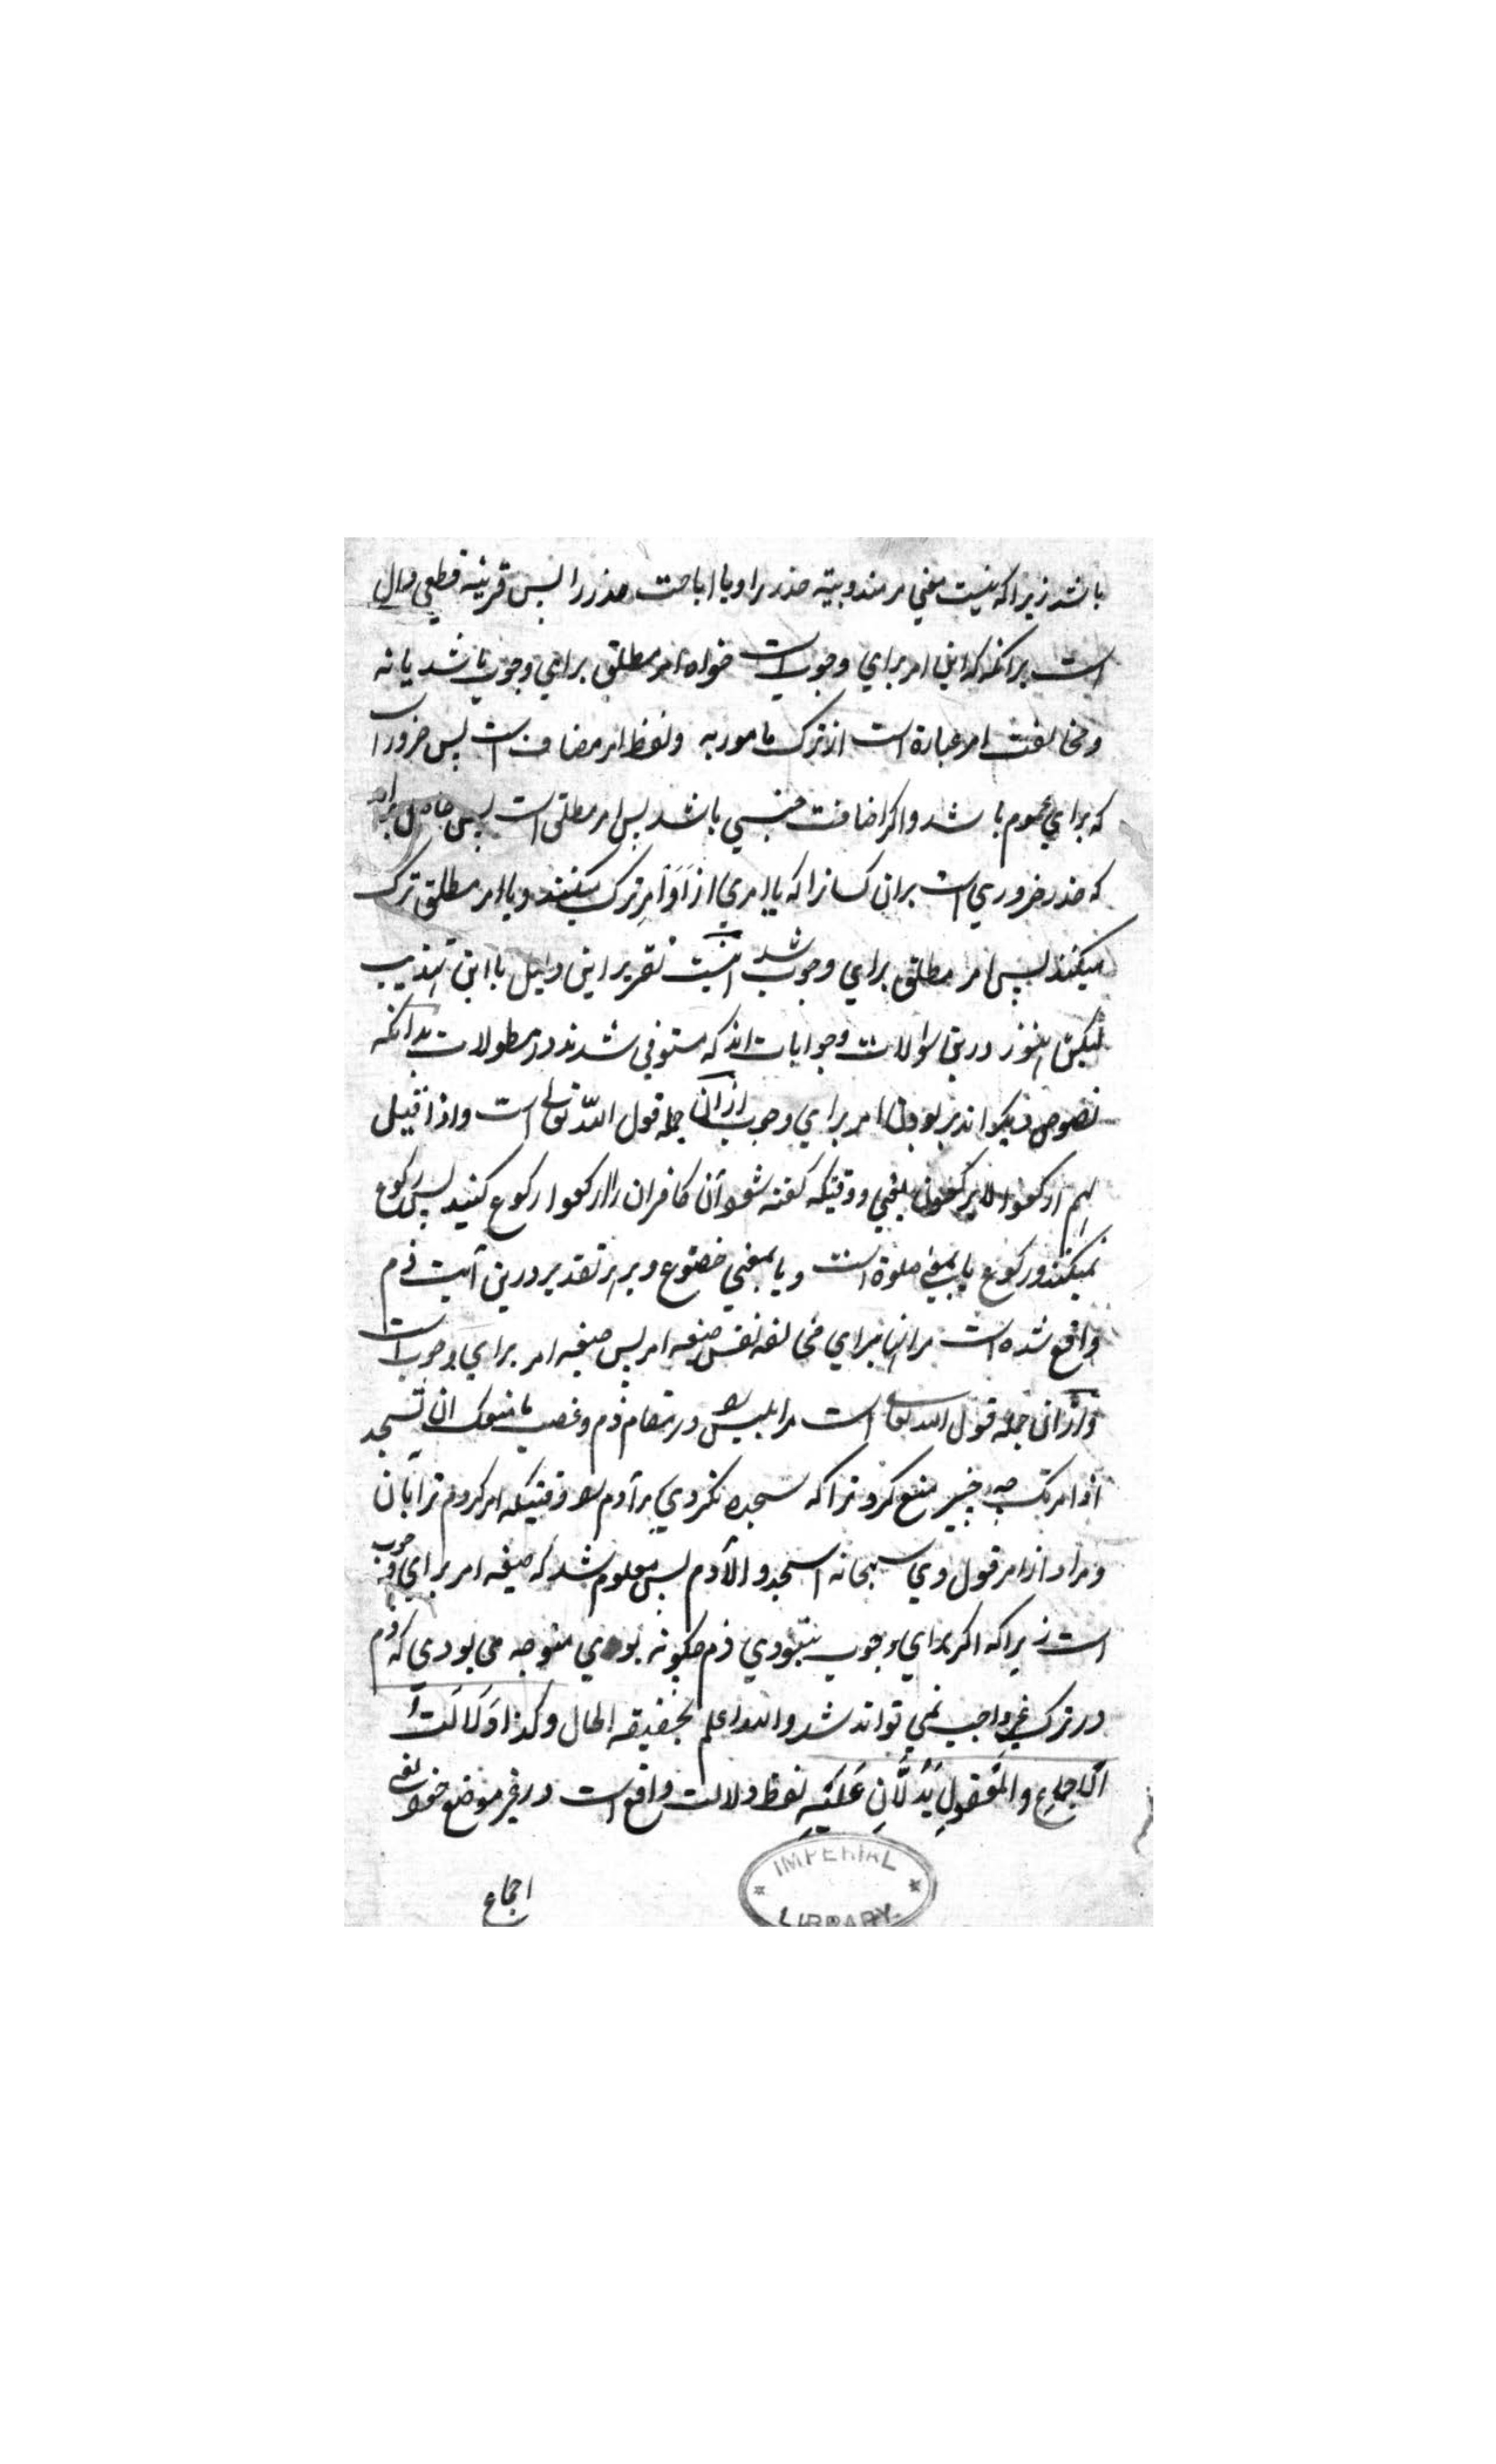 باشد زیرا که نیست معنی مر مندوبیة حذر را و یا اباحت حذر را پس قرینه قطعی دال
است برانکه که این امر برای وجوب است خواه امر مطلق برای وجوب باشد یا نه
و مخالفت امر عبارة است از ترک مامور به و لفظ امر مضاف است پس ضرور است
که برای عموم باشد و اکر اضافت جنسی باشد پس امر مطلق است پس حاصل براه
که حذر ضروری است بران کسانرا که یا امری از اَوَامِر ترک میکنند و یا امر مطلق ترک
میکنند پس امر مطلق برای وجوب شد اینست تقریر این دلیل با این تهذیب
لیکن هنوز درین سؤالات و جوابات اند که مستوفی شدند در مطولات بدانکه
نصوص دیکر اند بر بودن امر برای وجوب ازان جمله قول الله تعالی است و اذا قیل
لهم ارکعوا لا یرکعون یعنی و وقتیکه کفته شود آن کافران را ارکعوا رکوع کنید پس رکوع
نمیکنند و رکوع یا بمعنی صلوة است و یا بمعنی خضوع و بر هر تقدیر درین آیت ذم
واقع شده است مر انها برای مخالفه نفس صیغه امر پس صیغه امر برای وجوب است
و ازانجمله قول الله تعالی است مر ابلیس را در مقام ذم و غضب ما منعک ان تسجد
اذ امرتک چه چیز منع کرد ترا که سجده نکردی مر آدم را وقتیکه امر کردم ترا بان
و مراد از امر قول وی سبحانه اسجدوا لآدم پس معلوم شد که صیغه امر برای وجوب
است زیرا که اکر برای وجوب نبودی ذم چکونه بودی متوجه می بودی که ذم
در ترک غیر واجب نمی تواند شد والله اعلم بحقیقه الحال و کذا دَلَالَتُ
الاجماعِ والمَعقولِ یَدُلَّانِ عَلَیهِ لفظ دلالت واقع است در غیر موضع خود یعنی
اجماع
IMPERIAL
LIBRARY